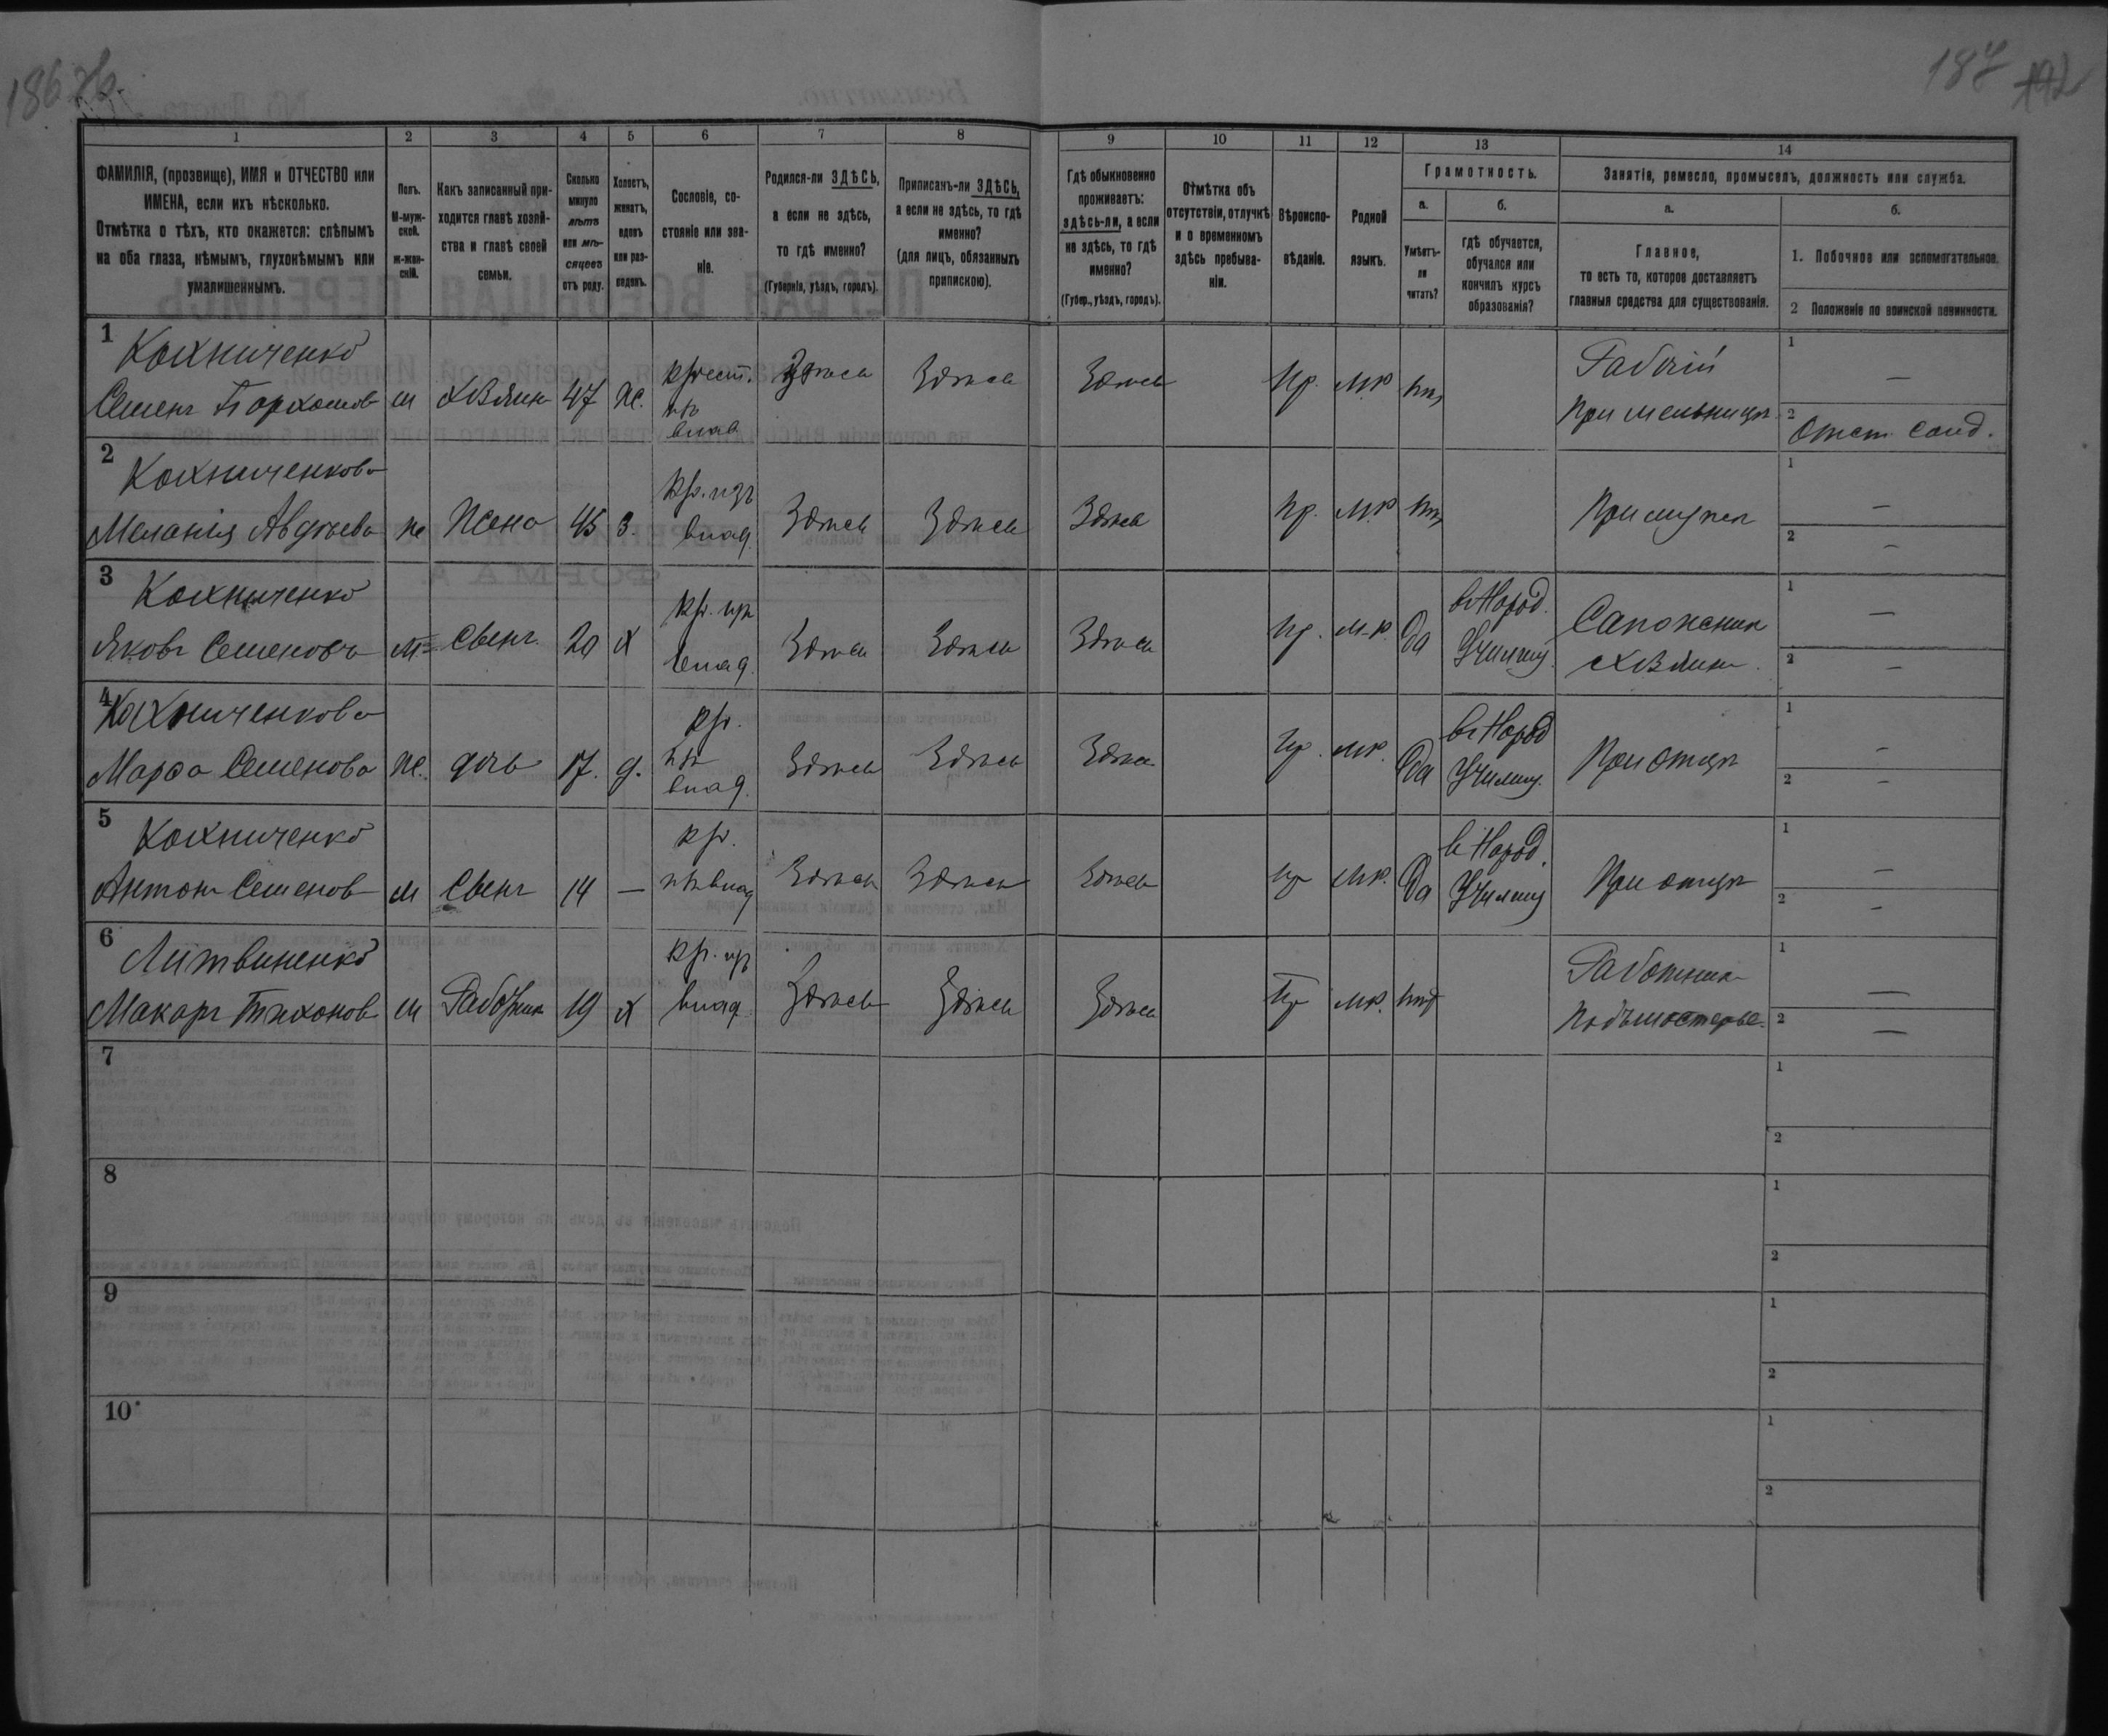 186 об.
187 192
1 2 3 4 5 6 7 8 9 10 11 12 13 14
ФАМИЛІЯ, (прозвище), ИМЯ и ОТЧЕСТВО или
ИМЕНА, если ихъ нѣсколько.
Отмѣтка о тѣхъ, кто окажется: слѣпымъ
на оба глаза, нѣмымъ, глухонѣмымъ или
умалишеннымъ.
Полъ.
М-муж-
ской.
ж-жен-
скій.
Какъ записанный при-
ходится главѣ хозяй-
ства и главѣ своей
семьи.
Сколько
минуло
лѣтъ
или мѣ-
сяцевъ
отъ роду.
Холостъ,
женатъ,
вдовъ
или раз-
веденъ.
Сословіе, со-
стояніе или зва-
ніе.
Родился-ли ЗДѢСЬ,
а если не здѣсь,
то гдѣ именно?
(Губернія, уѣздъ, городъ).
Приписанъ-ли ЗДѢСЬ,
а если не здѣсь, то гдѣ
именно?
(для лицъ, обязанныхъ
припискою).
Гдѣ обыкновенно
проживаетъ:
здѣсь-ли, а если
не здѣсь, то гдѣ
именно?
(Губер., уѣздъ, городъ).
Отмѣтка объ
отсутствіи, отлучкѣ
и о временномъ
здѣсь пребыва-
ніи.
Вѣроиспо-
вѣданіе.
Родной
языкъ.
Грамотность.
а.
Умѣетъ-
ли
читать?
б.
гдѣ обучается,
обучался или
кончилъ курсъ
образованія?
Занятія, ремесло, промыселъ, должность или служба.
а.
Главное,
то есть то, которое доставляетъ
главныя средства для существованія.
б.
1. Побочное или вспомогательное.
2 Положеніе по воинской повинности.
1 Кохниченко
Семенъ Пархомов м хозяин 47 ж. крест. из влад Здѣсь Здѣсь Здѣсь Пр. М.р нѣт Рабочій
при мельницѣ 1 —
2 Отст солд.
2 Кохниченкова
Меланія Авдѣева ж Жена 45 З. кр. изъ влад. Здѣсь Здѣсь Здѣсь Пр. М.р нѣт При мужѣ 1 —
2 —
3 Кохниченко
Яковъ Семеновъ м Сынъ 20 х кр. изъ влад. Здѣсь Здѣсь Здѣсь Пр. М.р. Да в Народ.
Училищ. Сапожник
хозяин. 1 —
2 —
4 Кохниченкова
Марфа Семенова ж. дочь 17. д. кр. изъ влад. Здѣсь Здѣсь Здѣсь Пр. М.р. Да въ Народ
Училищ. При отцѣ 1 —
2 —
5 Кохниченко
Антонъ Семенов м Сынъ 14 — кр. из влад Здѣсь Здѣсь Здѣсь Пр М.р. Да в Народ.
Училищ При отцѣ 1 —
2 —
6 Литвиненко
Макаръ Тихонов м Работник 19 х кр. изъ влад. Здѣсь Здѣсь Здѣсь Пр М.р. нѣт Работник
Подъмастерье. 1 —
2 —
7 1
2
8 1
2
9 1
2
10 1
2